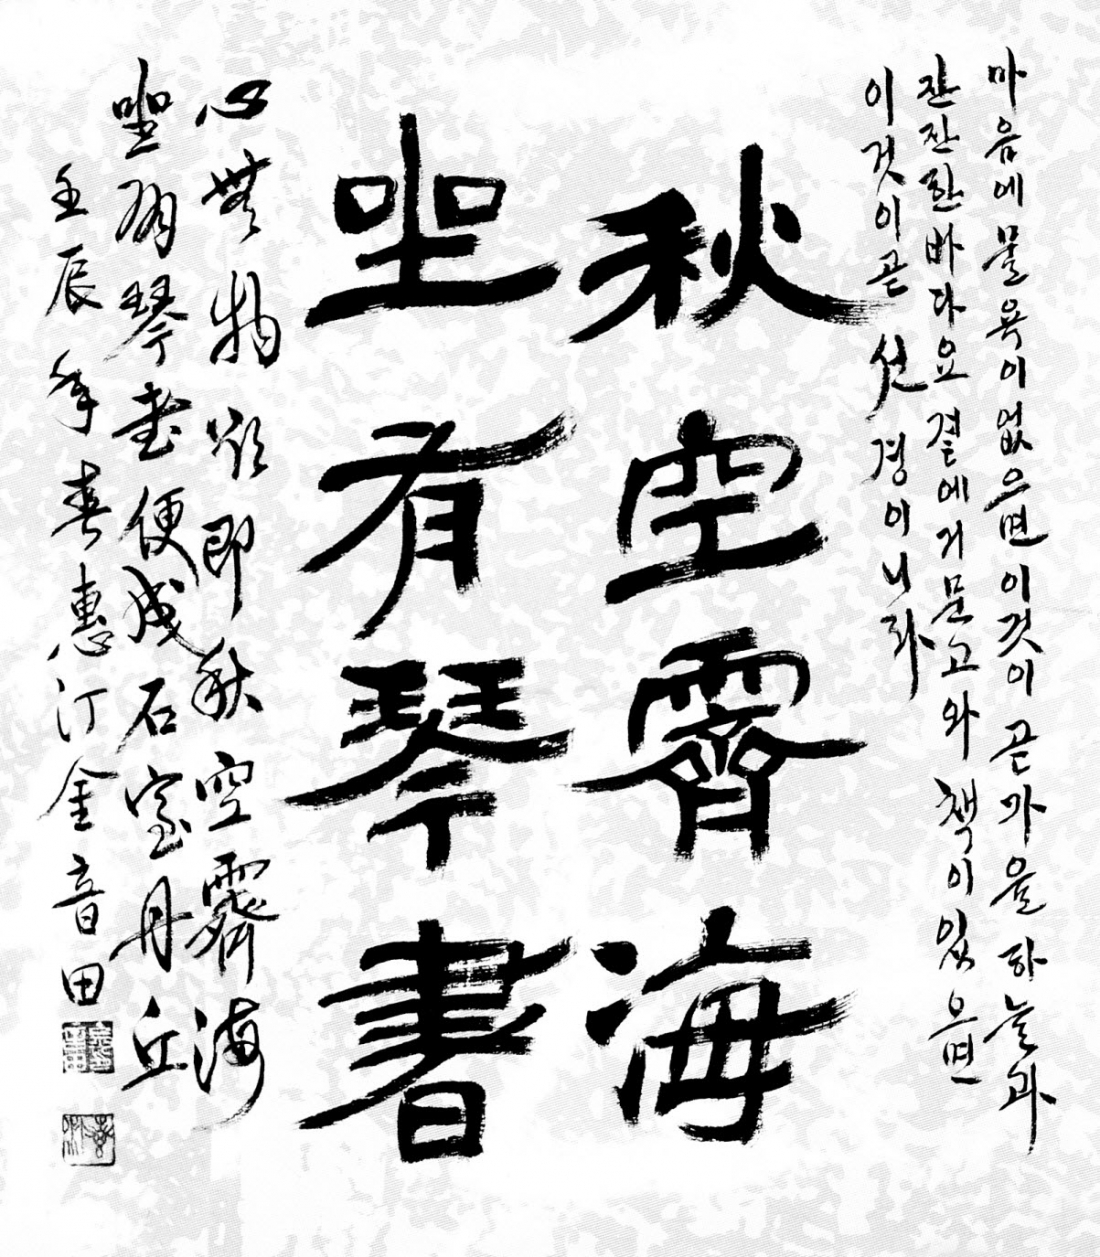 마음에물욕이없으면이것이곧가을하늘과
잔잔한바다요곁에거문고와책이있으면
이것이곧선경이니라
秋空霽海
坐有琴書
心無物欲即秋空霽海
坐有琴書便成石室丹丘
壬辰年春惠汀金音田